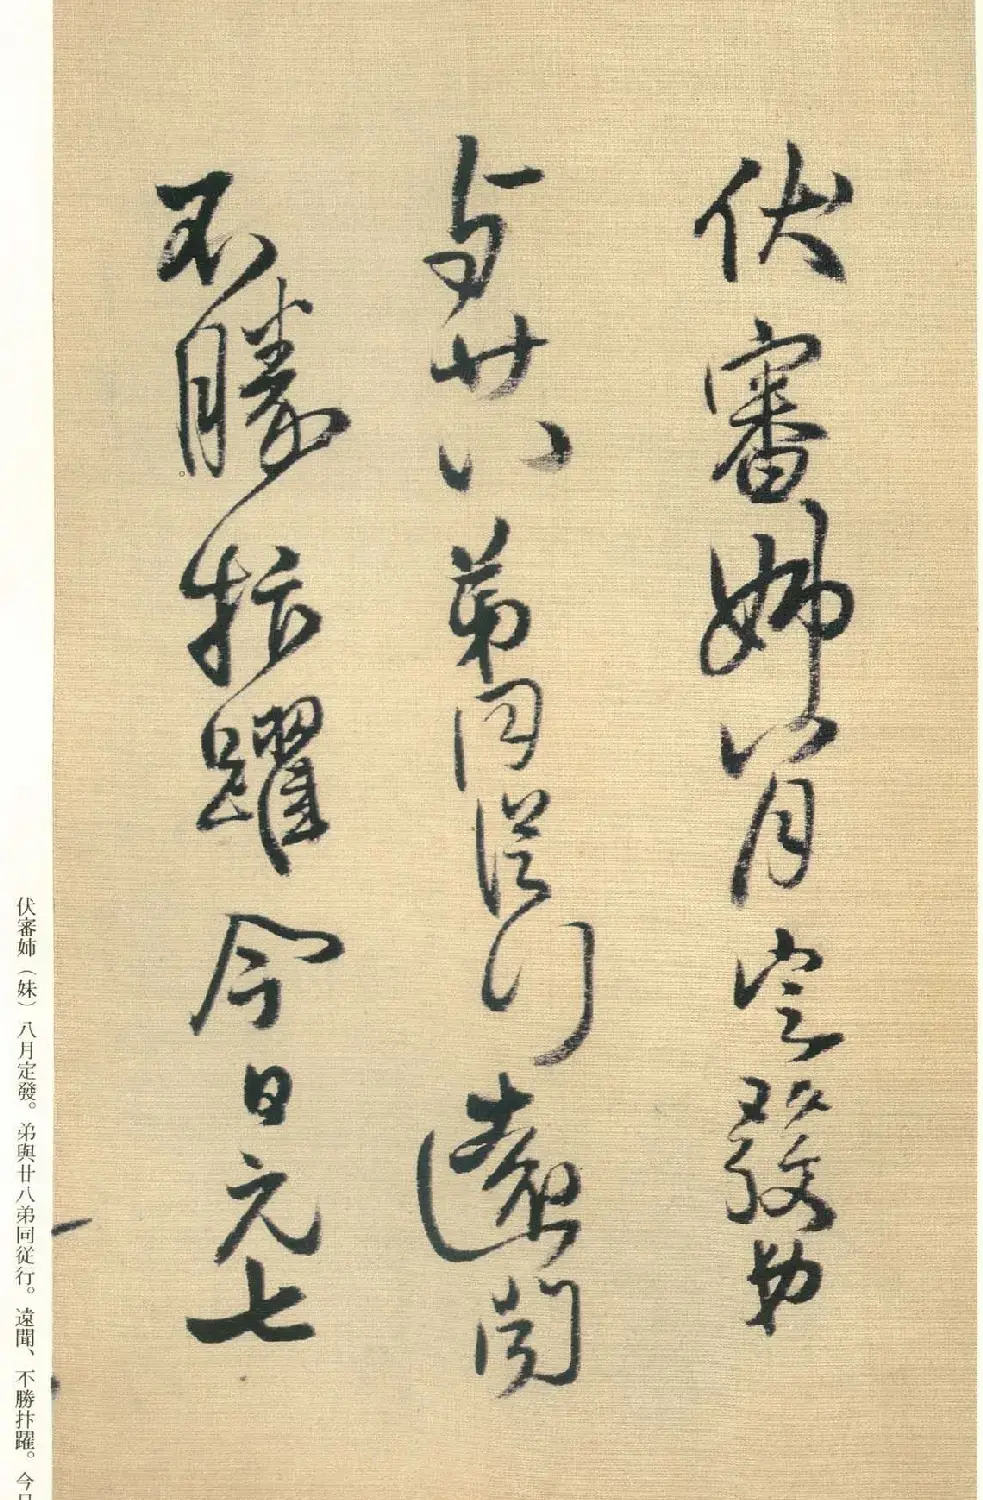 伏審姉八月定發
与廿八弟同從行遠聞
不勝抃躍今日元七
伏審姉（妹）八月定發。弟與廿八弟同従行。遠聞、不勝抃躍。今日